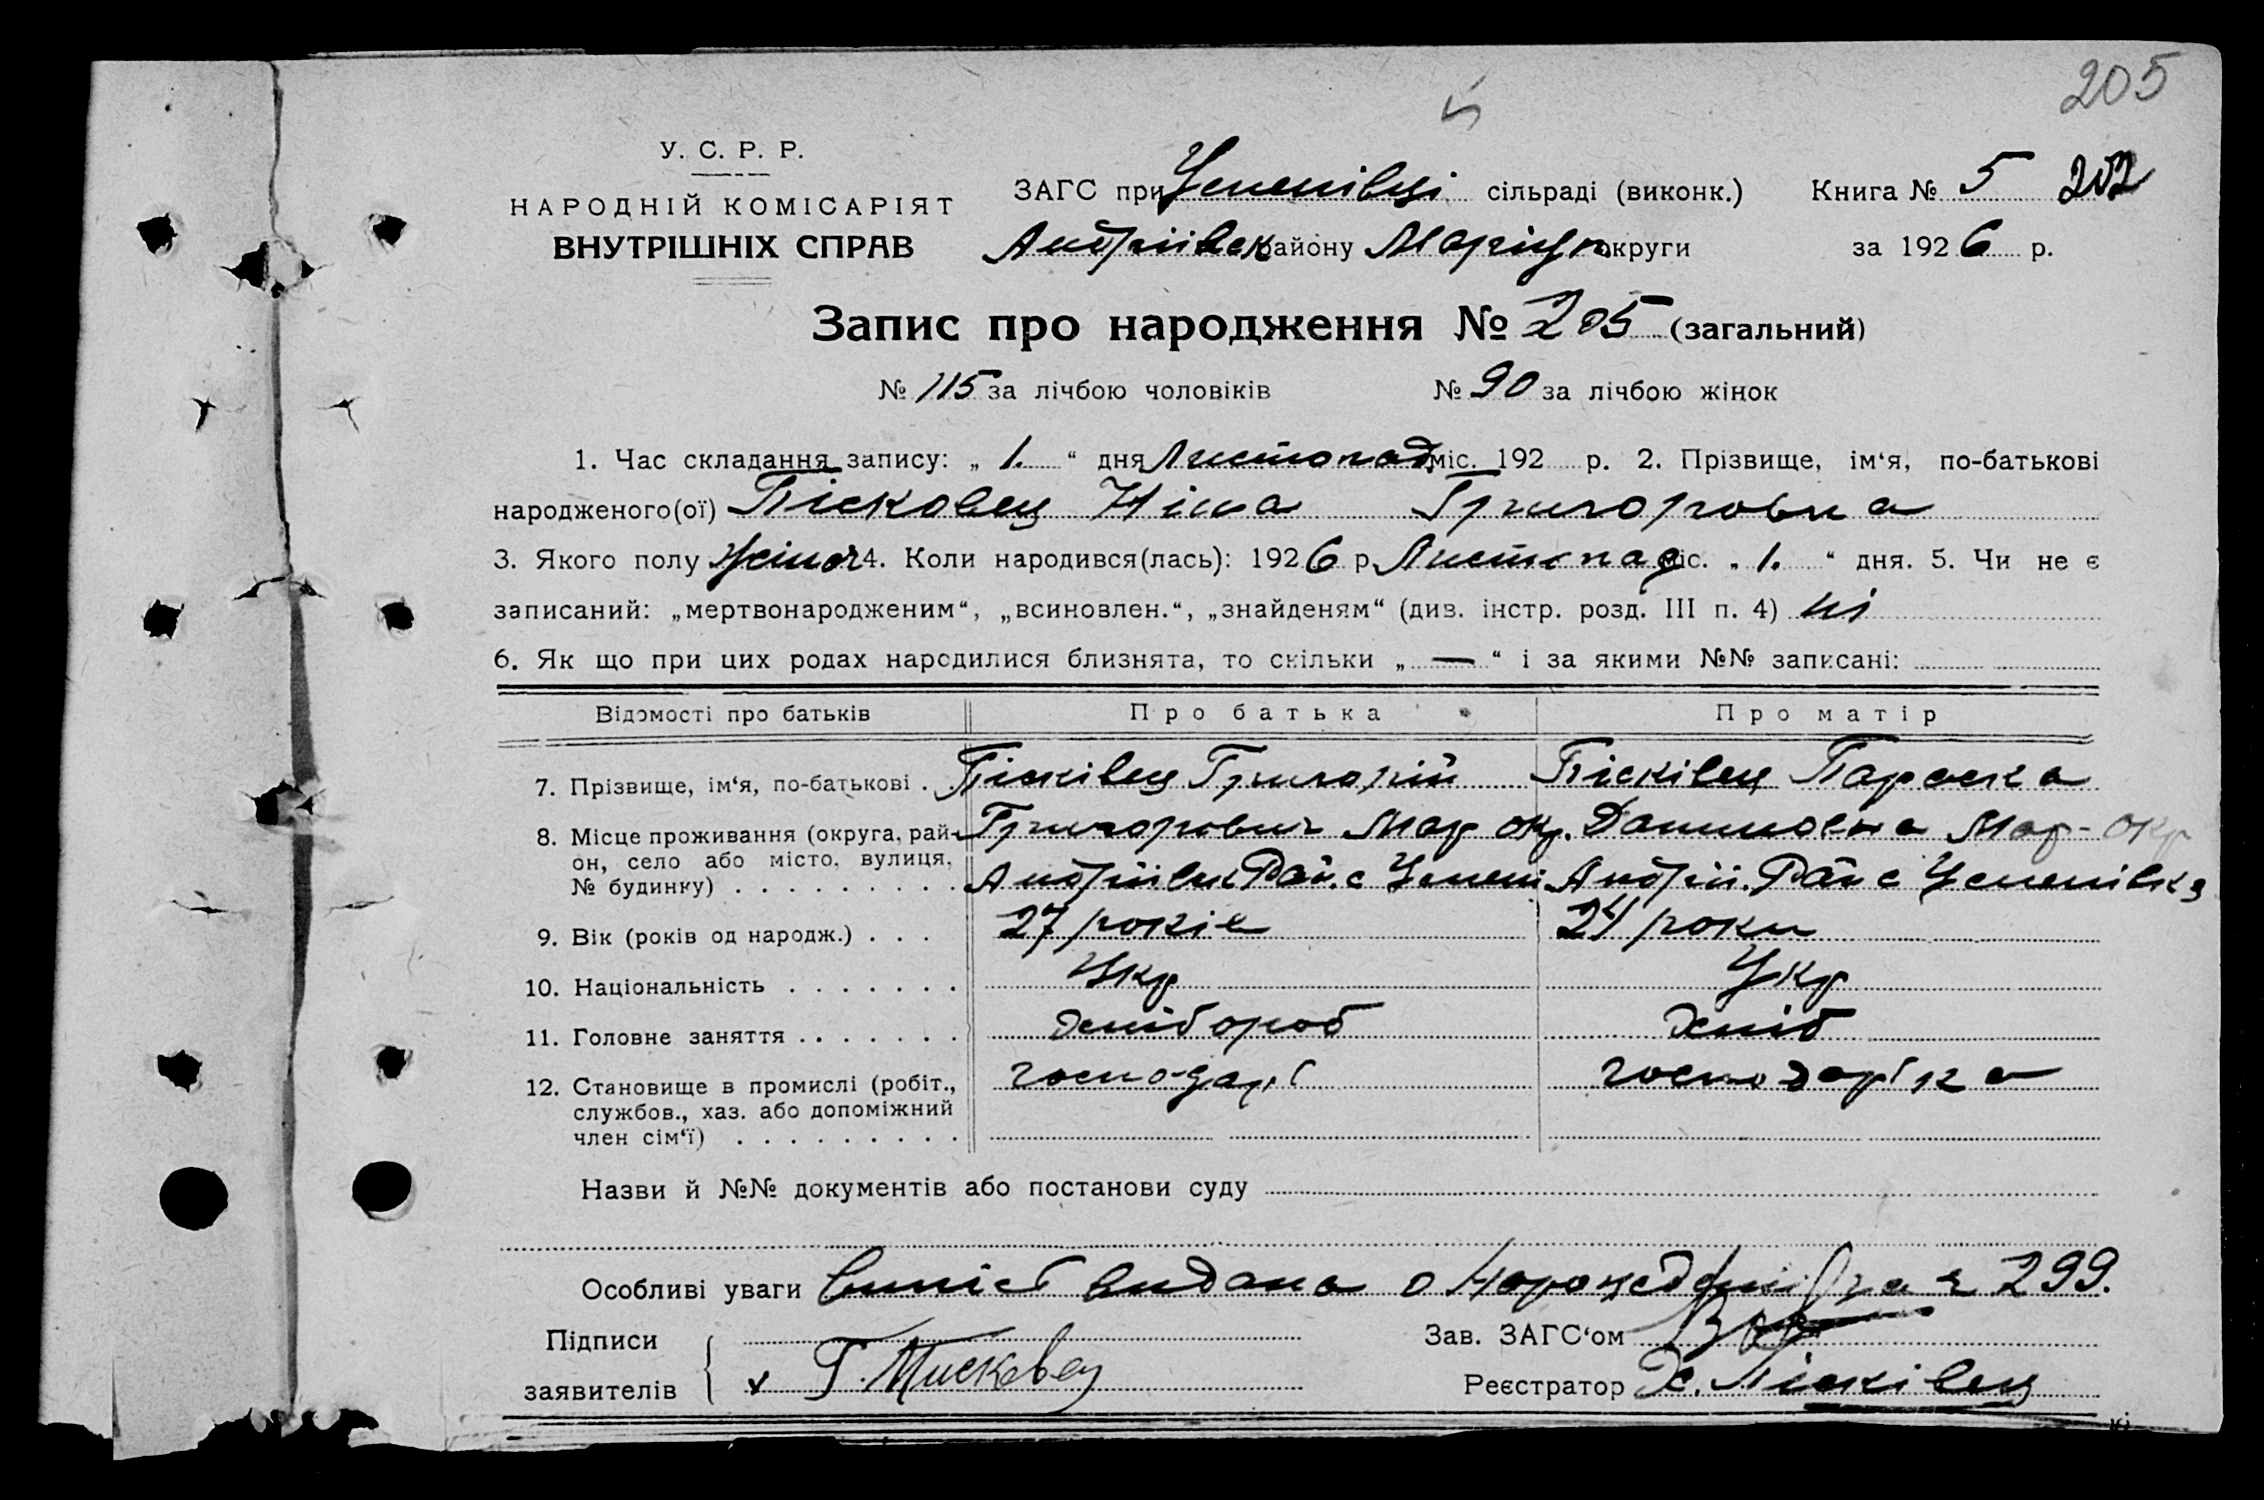 205
У. С. Р. Р.
НАРОДНІЙ КОМІСАРІЯТ
ВНУТРІШНІХ СПРАВ
ЗАГС при Успенівці сільраді (виконк.) Книга № 5 202
Андріівск району Маріуп округи за 1926 р.
Запис про народження № 205 (загальний)
№ 115 за лічбою чоловіків № 90 за лічбою жінок
1. Час складання запису: „ 1. “ дня Листопад міс. 192 р. 2. Прізвище, ім‘я, по-батькові
народженого(ої) Пісковец Ніна Григоровна
3. Якого полу жіноч 4. Коли народився(лась): 1926 р. Листопад міс. „ 1. “ дня. 5. Чи не є
записаний: „мертвонародженим“, „всиновлен.“, „знайденям“ (див. інстр. розд. III п. 4) ні
6. Як що при цих родах народилися близнята, то скільки „ — “ і за якими №№ записані:
Відомості про батьків Про батька Про матір
7. Прізвище, ім‘я, по-батькові . . Пісківец Григорій Пісківец Параска
8. Місце проживання (округа, рай- Григорович Мар окр. Даниловна Мар-окр
он, село або місто, вулиця, Андріівск Рай. с Успені Андрій. Рай с Успенівка
№ будинку) . . . . . . . . . .
9. Вік (років од народж.) . . . 27 років 24 роки
10. Національність . . . . . . . Укр Укр
11. Головне заняття . . . . . . . хлібороб хліб
12. Становище в промислі (робіт., господарь господарька
службов., хаз. або допоміжний
член сім‘ї) . . . . . . . . . .
Назви й №№ документів або постанови суду
Особливі уваги випісь видана о 299.
Підписи Зав. ЗАГС‘ом
заявителів v Г. Писковец Реєстратор Х. Пісківец